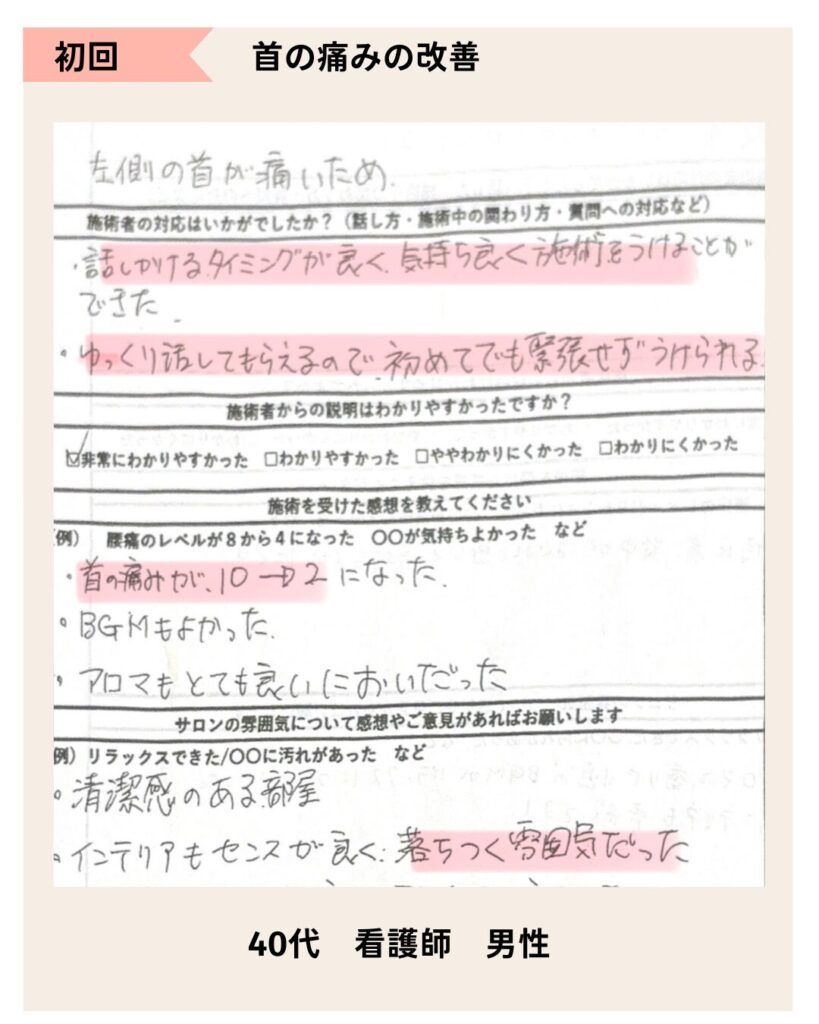 初回
首の痛みの改善
左側の首が痛いため.
施術者の対応はいかがでしたか？（話し方・施術中の関わり方・質問への対応など）
・話しかけるタイミングが良く、気持ち良く施術をうけることが
できた.
・ゆっくり話してもらえるので、初めてでも緊張せずうけられる
施術者からの説明はわかりやすかったですか？
☑非常にわかりやすかった ☐わかりやすかった ☐ややわかりにくかった ☐わかりにくかった
施術を受けた感想を教えてください
例） 腰痛のレベルが８から４になった 〇〇が気持ちよかった など
・首の痛みが、10→2 になった.
・BGMもよかった.
・アロマもとても良いにおいだった
サロンの雰囲気について感想やご意見があればお願いします
例）リラックスできた/〇〇に汚れがあった など
・清潔感のある部屋
・インテリアもセンスが良く、落ちつく雰囲気だった
40代 看護師 男性